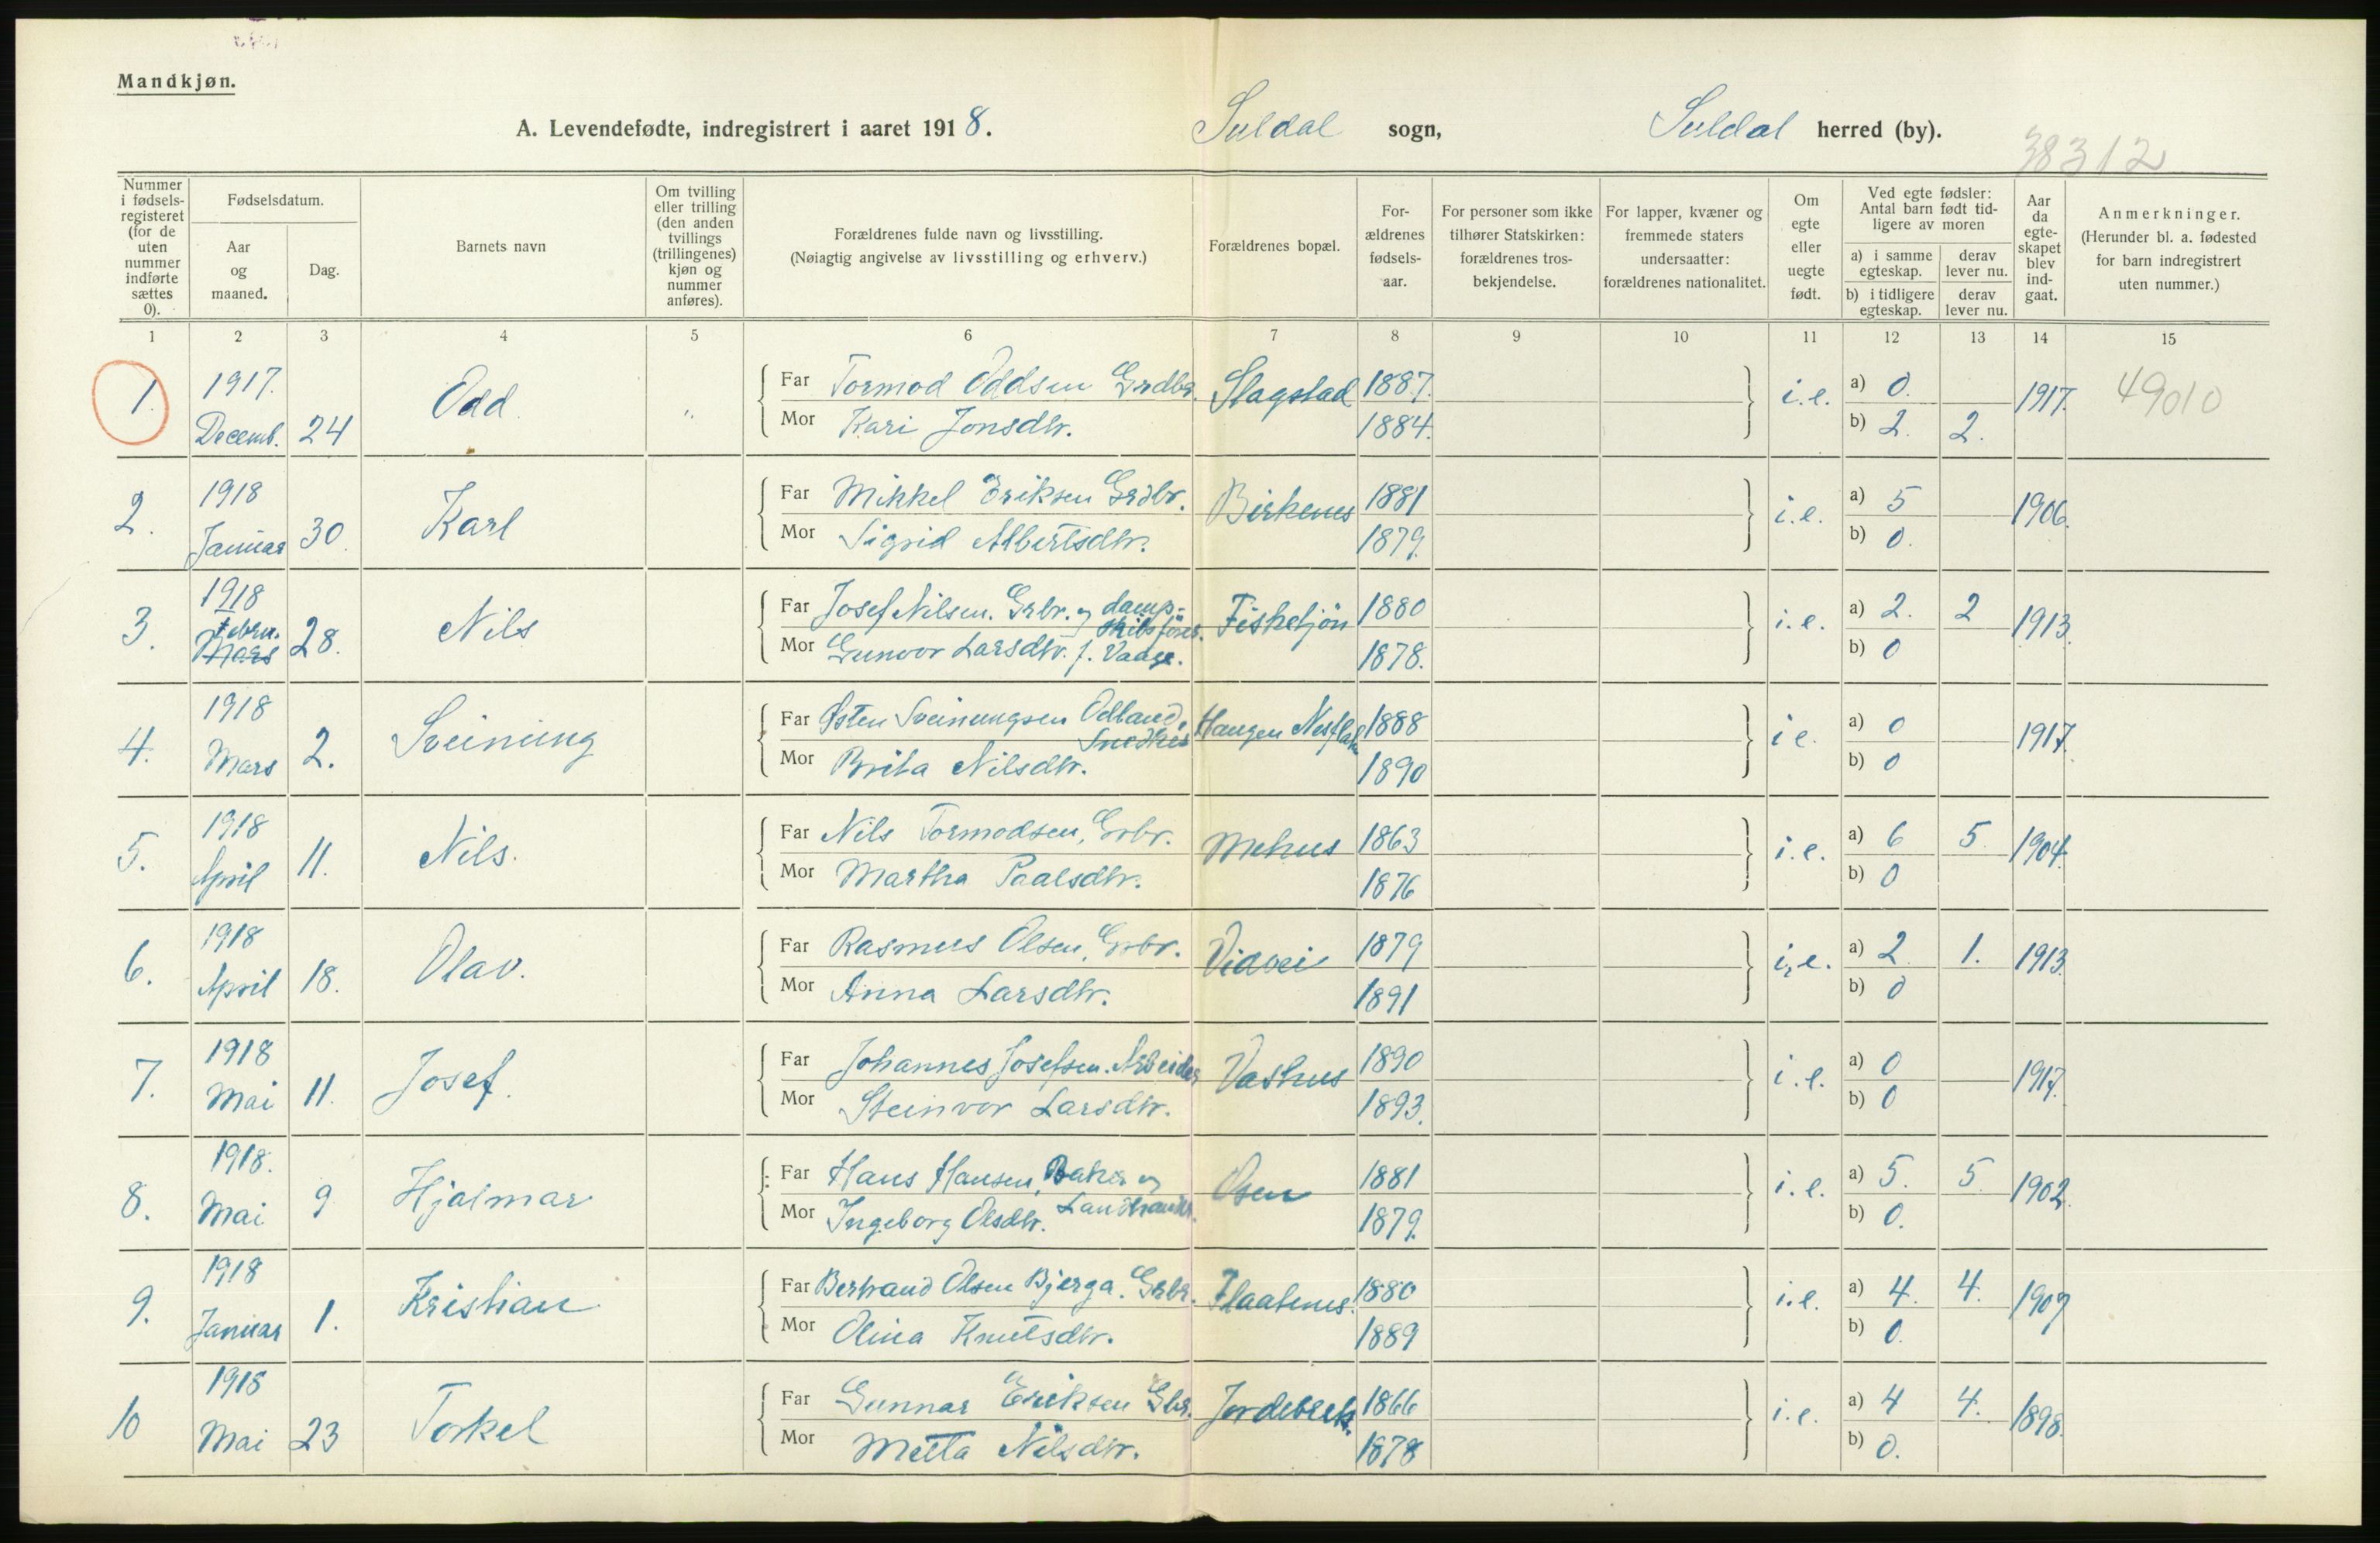 Mandkjøn.
A. Levendefødte, indregistrert i aaret 1918. Suldal sogn, Suldal herred (by).
38312
Nummer i fødsels-registeret (for de uten nummer indførte sættes 0).
Fødselsdatum.
Aar og maaned.
Dag.
Barnets navn
Om tvilling eller trilling (den anden tvillings (trillingenes) kjøn og nummer anføres).
Forældrenes fulde navn og livsstilling.
(Nøiagtig angivelse av livsstilling og erhverv.)
Forældrenes bopæl.
For-ældrenes fødsels-aar.
For personer som ikke tilhører Statskirken: forældrenes tros-bekjendelse.
For lapper, kvæner og fremmede staters undersaatter: forældrenes nationalitet.
Om egte eller uegte født.
Ved egte fødsler: Antal barn født tid-ligere av moren
a) i samme egteskap.
derav lever nu.
b) i tidligere egteskap.
derav lever nu.
Aar da egte-skapet blev ind-gaat.
Anmerkninger.
(Herunder bl. a. fødested for barn indregistrert uten nummer.)
1 2 3 4 5 6 7 8 9 10 11 12 13 14 15
1. 1917. Decemb. 24 Odd. „
Far Tormod Oddsen Grdbr. Slagstad 1887. i.e. a) 0. 1917. 49010
Mor Kari Jonsdtr. 1884. b) 2. 2.
2. 1918 Januar 30. Karl
Far Mikkel Eriksen Grdbr. Birkenes 1881 i.e. a) 5 1906.
Mor Sigrid Albertsdtr. 1879. b) 0.
3. 1918 Febru. Mars 28. Nils
Far Josef Nilsen. Grbr. og damp-skibsfører. Fisketjön 1880 i.e. a) 2. 2 1913.
Mor Gunvor Larsdtr. f. Vaage. 1878. b) 0
4. 1918 Mars 2. Sveinung
Far Østen Sveinungsen Odland, Snedker Haugen Nesflaten 1888 i e. a) 0 1917.
Mor Brita Nilsdtr. 1890 b) 0
5. 1918 April 11. Nils.
Far Nils Tormodsen, Grbr. Mehus 1863 i.e. a) 6 5 1904.
Mor Martha Paalsdtr. 1876 b) 0
6. 1918 April 18. Olav.
Far Rasmus Olsen, Grbr. Vidvei 1879 i.e. a) 2 1. 1913.
Mor Anna Larsdtr. 1891 b) 0
7. 1918 Mai 11. Josef.
Far Johannes Josefsen. Arbeider Vashus 1890 i.e. a) 0 1917.
Mor Steinvor Larsdtr. 1893. b) 0
8. 1918. Mai 9 Hjalmar
Far Hans Hansen, Baker og Landhandr. Osen 1881 i.e. a) 5. 5. 1902.
Mor Ingeborg Olsdtr. 1879. b) 0.
9. 1918 Januar 1. Kristian
Far Bertrand Olsen Bjerga. Grbr. Flaatenes. 1880 i.e. a) 4. 4. 1907
Mor Olina Knutsdtr. 1889 b) 0.
10 1918 Mai 23 Torkel
Far Gunnar Eriksen Gbr. Jordebrek. 1866 i.e. a) 4 4. 1898.
Mor Metta Nilsdtr. 1878 b) 0.